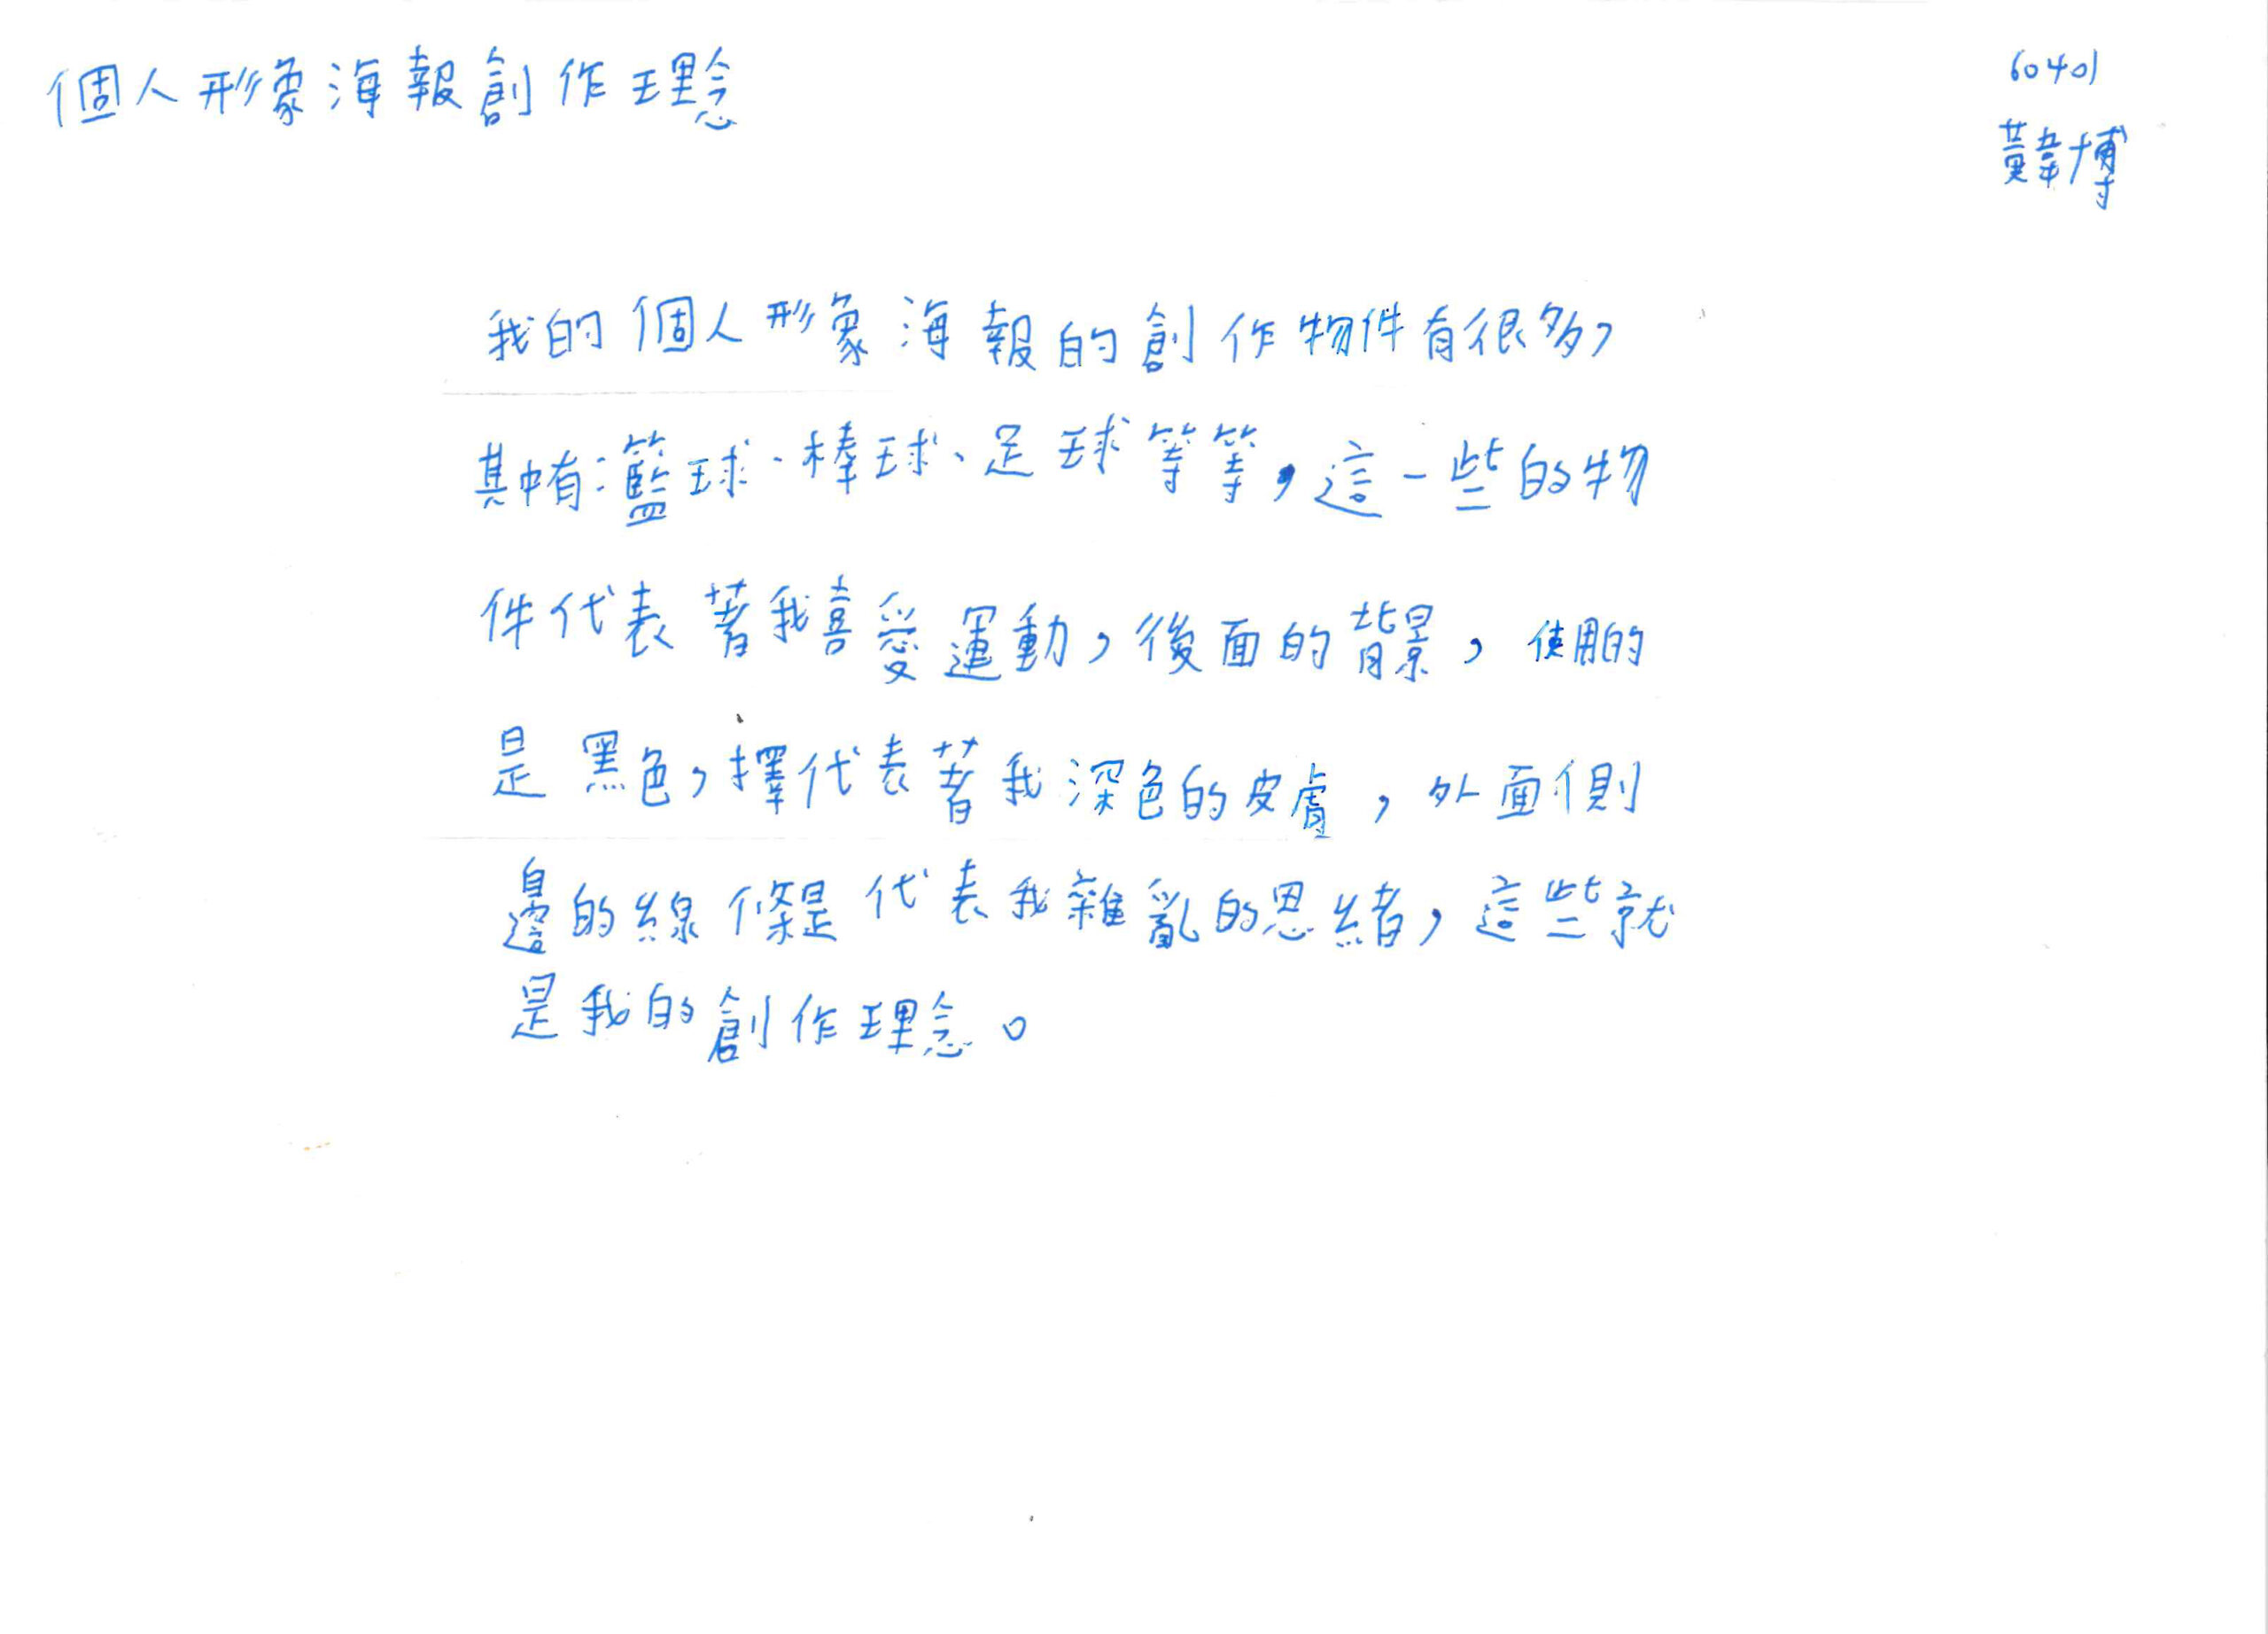 個人形象海報創作理念
60401
黃韋博
我的個人形象海報的創作物件有很多，
其中有:籃球、棒球、足球等等，這一些的物
件代表著我喜愛運動，後面的背景，使用的
是黑色，擇代表著我深色的皮膚，外面側
邊的線條是代表我雜亂的思緒，這些就
是我的創作理念。